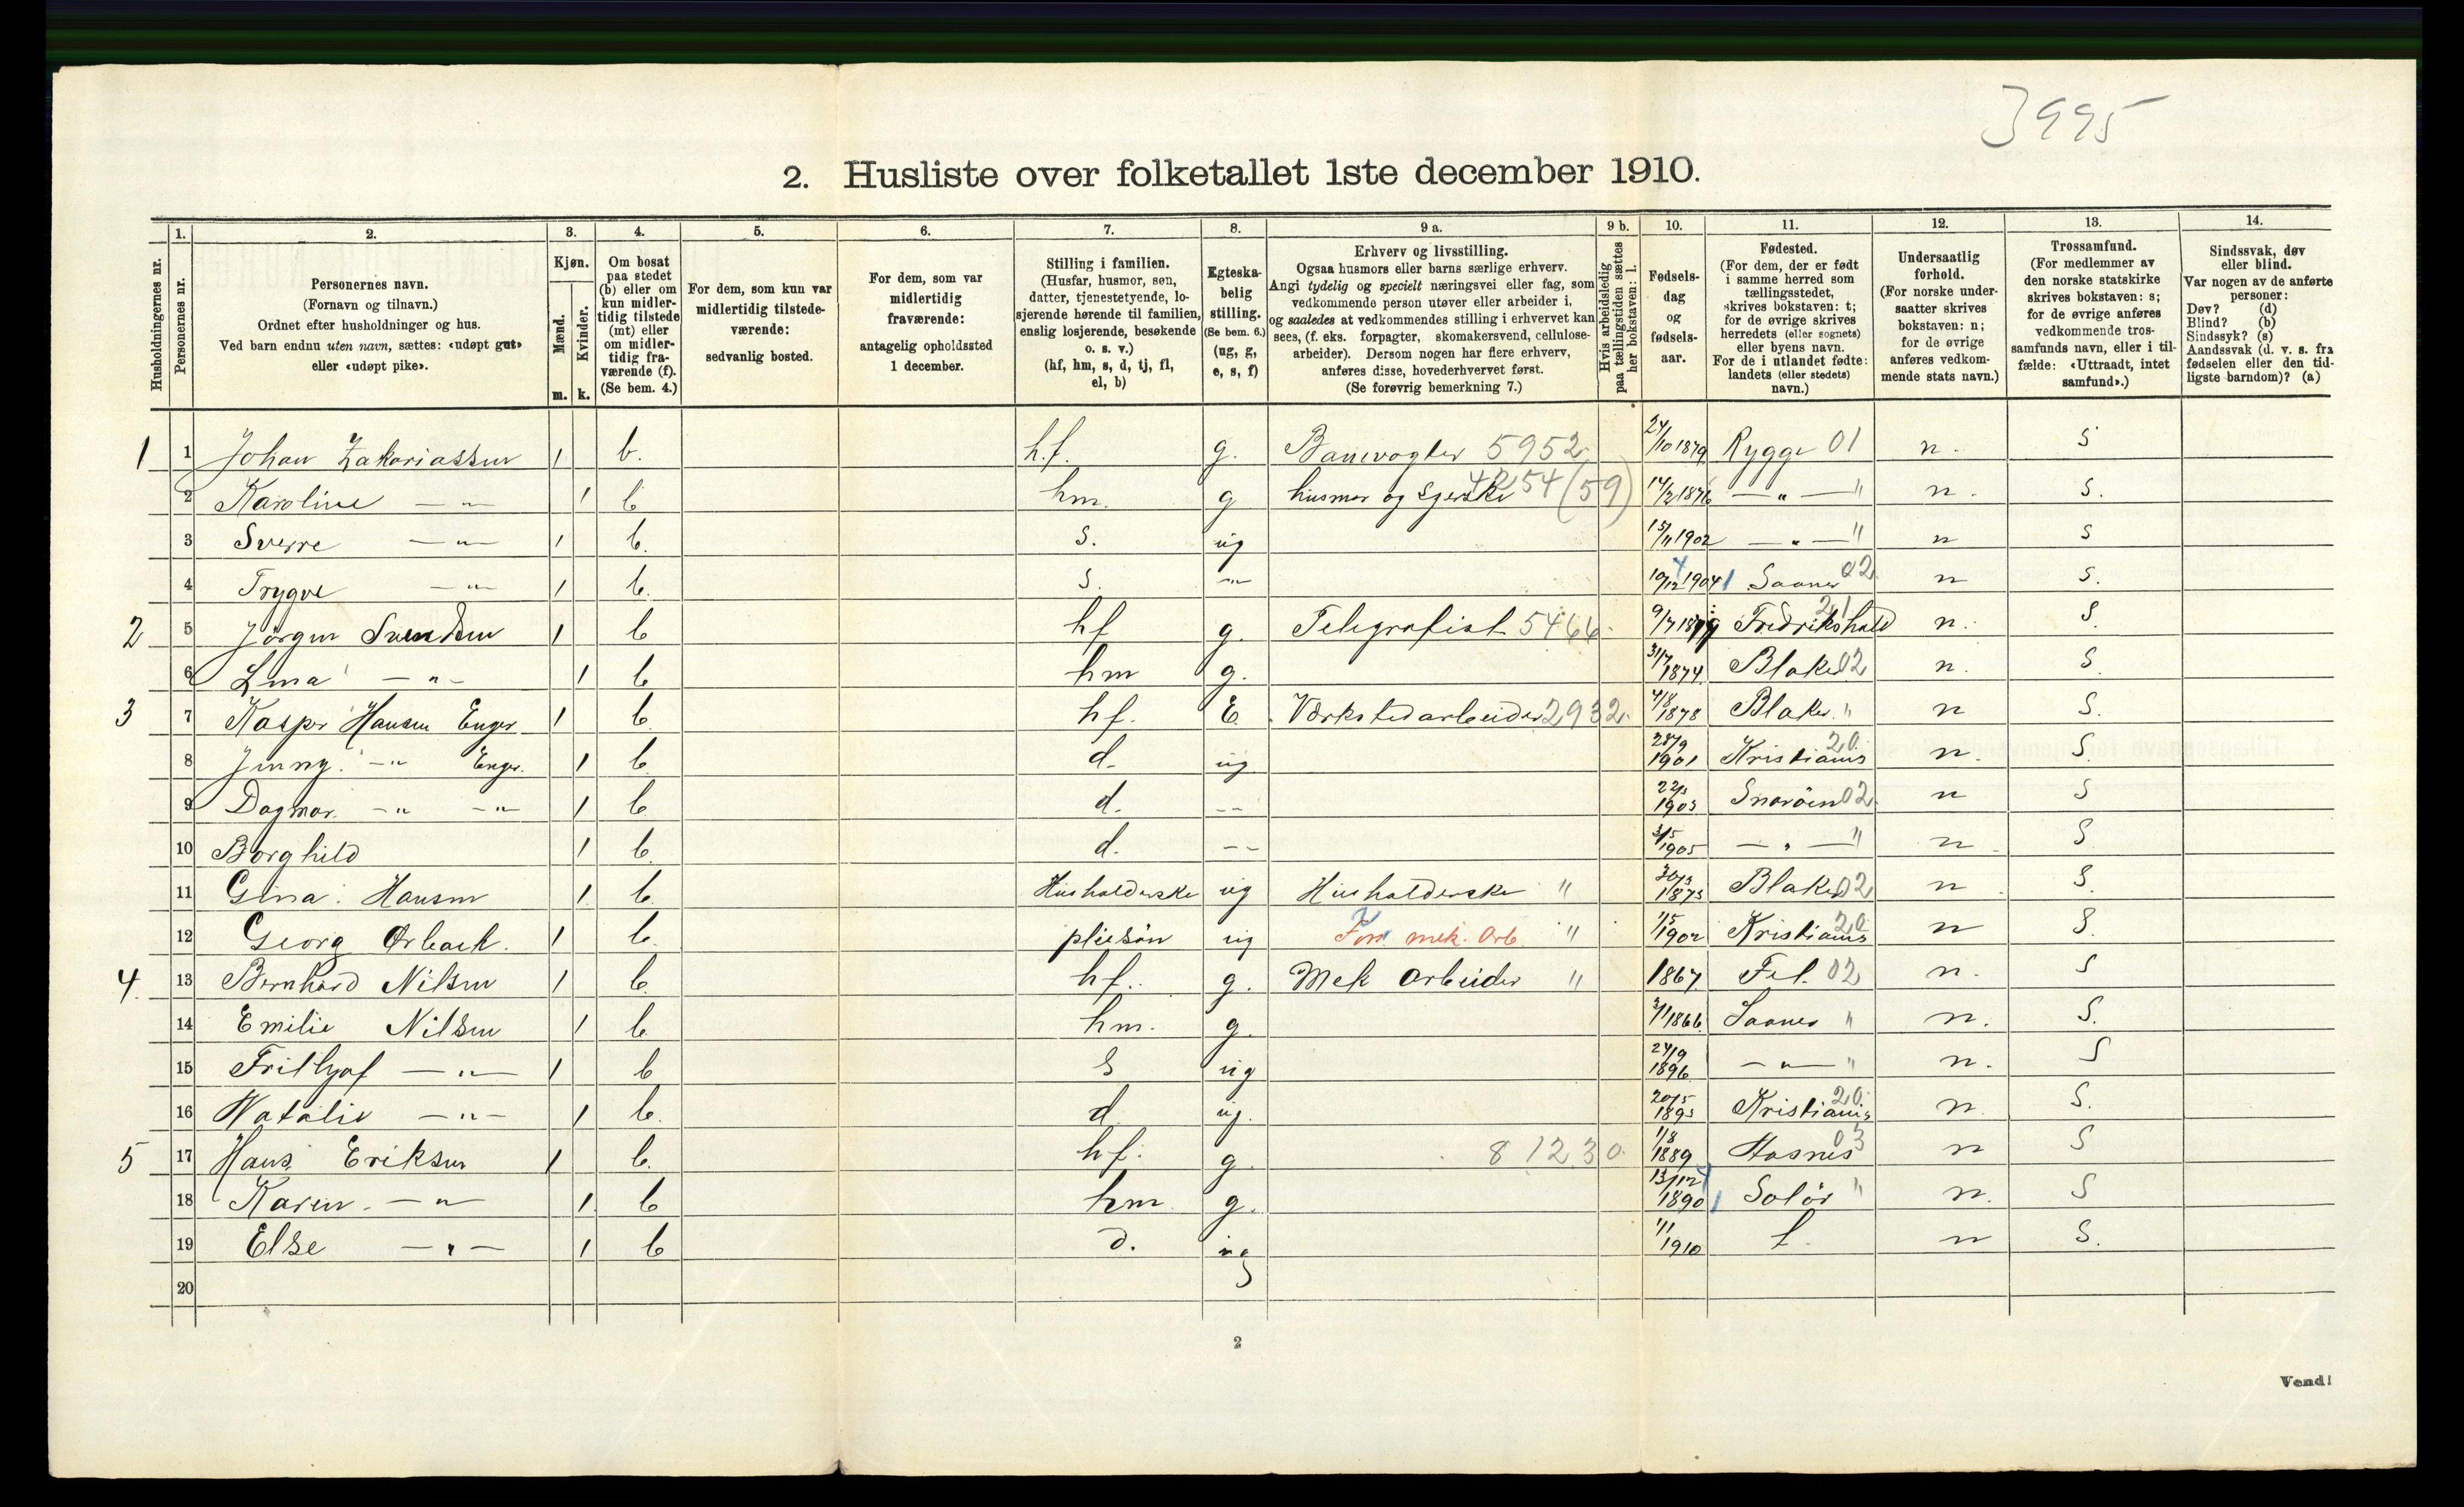 3995
2. Husliste over folketallet 1ste december 1910.
Husholdningernes nr.
1. Personernes nr.
2. Personernes navn.
(Fornavn og tilnavn.)
Ordnet efter husholdninger og hus.
Ved barn endnu uten navn, sættes: «udøpt gut»
eller «udøpt pike».
3. Kjøn.
Mænd. m.
Kvinder. k.
4. Om bosat
paa stedet
(b) eller om
kun midler-
tidig tilstede
(mt) eller
om midler-
tidig fra-
værende (f).
(Se bem. 4.)
5. For dem, som kun var
midlertidig tilstede-
værende:
sedvanlig bosted.
6. For dem, som var
midlertidig
fraværende:
antagelig opholdssted
1 december.
7. Stilling i familien.
(Husfar, husmor, søn,
datter, tjenestetyende, lo-
sjerende hørende til familien,
enslig losjerende, besøkende
o. s. v.)
(hf, hm, s, d, tj, fl,
el, b)
8. Egteska-
belig
stilling.
(Se bem. 6.)
(ug, g,
e, s, f)
9 a. Erhverv og livsstilling.
Ogsaa husmors eller barns særlige erhverv.
Angi tydelig og specielt næringsvei eller fag, som
vedkommende person utøver eller arbeider i,
og saaledes at vedkommendes stilling i erhvervet kan
sees, (f. eks. forpagter, skomakersvend, cellulose-
arbeider). Dersom nogen har flere erhverv,
anføres disse, hovederhvervet først.
(Se forøvrig bemerkning 7.)
9 b. Hvis arbeidsledig
paa tællingstiden sættes
her bokstaven: l.
10. Fødsels-
dag
og
fødsels-
aar.
11. Fødested.
(For dem, der er født
i samme herred som
tællingsstedet,
skrives bokstaven: t;
for de øvrige skrives
herredets (eller sognets)
eller byens navn.
For de i utlandet fødte:
landets (eller stedets)
navn.)
12. Undersaatlig
forhold.
(For norske under-
saatter skrives
bokstaven: n;
for de øvrige
anføres vedkom-
mende stats navn.)
13. Trossamfund.
(For medlemmer av
den norske statskirke
skrives bokstaven: s;
for de øvrige anføres
vedkommende tros-
samfunds navn, eller i til-
fælde: «Uttraadt, intet
samfund».)
14. Sindssvak, døv
eller blind.
Var nogen av de anførte
personer:
Døv? (d)
Blind? (b)
Sindssyk? (s)
Aandssvak (d. v. s. fra
fødselen eller den tid-
ligste barndom)? (a)
1 1 Johan Zakariassen 1 b. h.f. g. Banevogter 5952 24/10 1879 Rygge 01 n. S
2 Karoline — „ — 1 b hm. g husmor og Syerske 4254 (59) 14/2 1876 — „ — " n. S.
3 Sverre — „ — 1 b. S. ug 15/11 1902 — „ — " n S
4 Trygve — „ — 1 b. S. — „ — 10/12 1904 Saaner 02 n S.
2 5 Jörgen Svendsen 1 b hf g. Telegrafist 5466 9/7 Fredrikshald 21 n. S.
6 Lina — „ — 1 b hm g. 31/7 1874. Blaker 02 n. S
3 7 Kasper Hansen Enger 1 b. hf. E. Værkstedarbeider 2932. 4/8 1878 Blaker " n S.
8 Jenny. — „ Enger. 1 b. d. ug 28/9 1901 Kristiania 20 n. S.
9 Dagmar — „ — „ 1 b. d. — — 1903 Snaröen 02 n S
10 Borghild 1 b. d. — — 3/5 1905 — „ — " n S
11 Gina Hansen 1. b. Husholderske ug Husholderske " 30/3 1873 Blaker 02 n S.
12 Georg Orback. 1 b. pleisön ug mek. Arb " 1/5 1902 Kristiania 20 n S.
4. 13 Bernhard Nilsen 1 b. hf. g. Mek Arbeider " 1867 Fet. 02 n. S
14 Emilie Nilsen 1 b. hm. g. 3/1 1866. Saaner " n. S.
15 Frithjof — „ — 1 b S ug 24/9 1896 — „ — " n. S
16 Natalie — „ — 1 b. d ug. 20/5 1893 Kristiania 20 n. S.
5 17 Hans Eriksen 1 b. hf. g. 8 1230 1/8 1889 Hasnes 03 n S
18 Karen — „ — 1. b hm g. 13/12 1890 Solör " n. S
19 Else — „ — 1 b d. ug 1/11 1910 t. n S.
20
2
Vend!